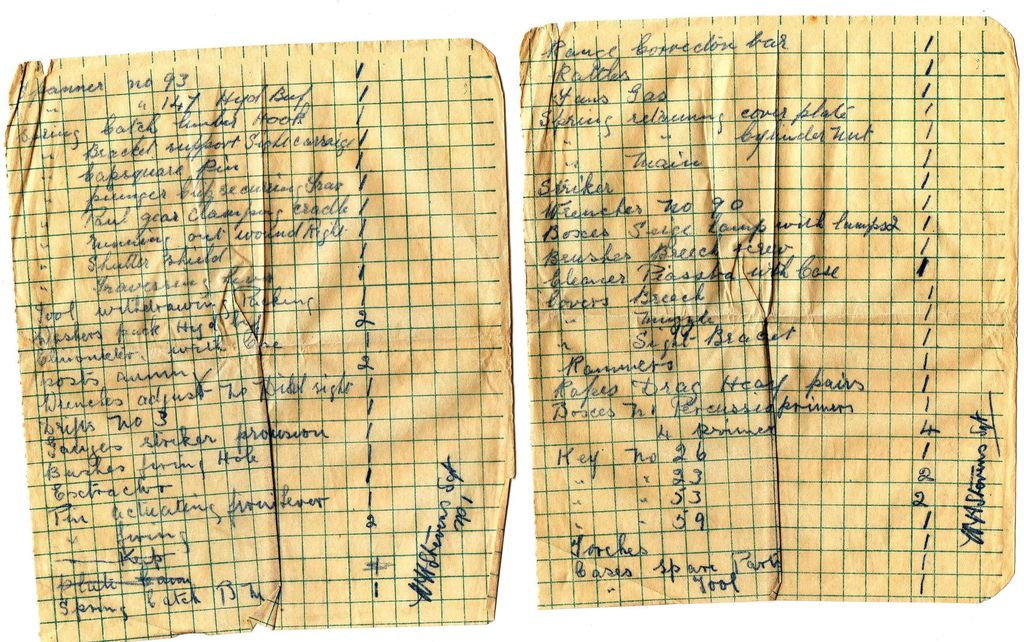 Spanner no 93 1
" " 147 Hyd Buf 1
Spring catch limber Hook 1
" Bracket support Sight carriage 1
" Capsquare Pin 1
" plunger securing Trav 1
" gear Clamping cradle 1
" running out wound Right 1
" Shutter Shield 1
" Traversing 1
Tool withdrawing Packing 1
Washers pack Hyd 2
Clinometer with case 1
posts 2
Wrenches adjust no Dial sight 1
Drifts no 3 1
Gauges striker protrusion 1
Bushes firing Hole 1
Extractor 1
Pin actuating lever 1
" firing 2
Keep
plate
Spring catch B M 1
W H Stevens Sgt
Range Correction bar 1
Rattles 1
Fans Gas 1
Spring retaining cover plate 1
" " cylinder nut 1
" main 1
Striker 1
Wrenches no 90 1
Boxes Seige Lamp with lamps 2 1
Brushes Breech screw 1
Cleaner Piassba with Case 1
Covers Breech 1
" muzzle 1
" Sight Bracket 1
Rammers 1
Ropes Drag Heavy pairs 1
Boxes Percussion primers 1
4 primer 4
Key no 26 1
" " 23 2
" " 53 2
" " 59 1
Torches 1
Cases Spare Parts 1
" Tool 1
W H Stevens Sgt